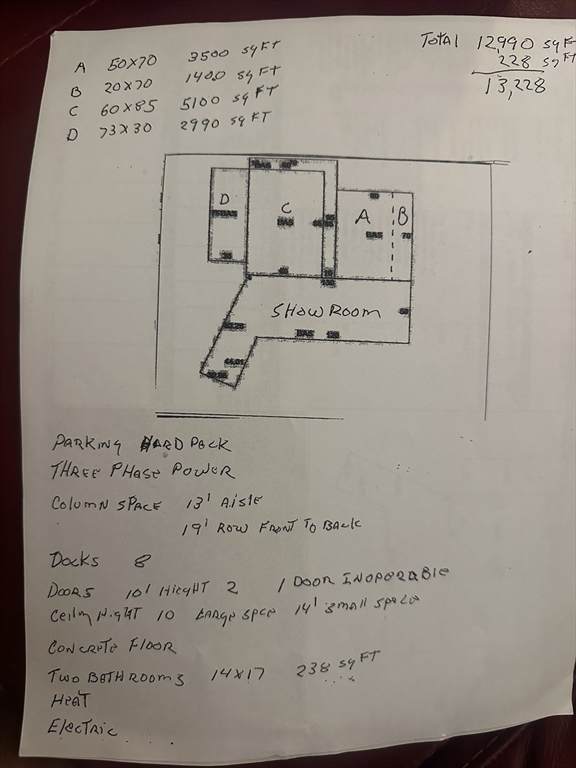 A 50x70 3500 sq FT
B 20x70 1400 sq FT
C 60x85 5100 sq FT
D 73x30 2990 sq FT
Total 12990 sq F
228 sq FT
13,228
D
C
BAS
A
B
BAS
70
SHOWROOM
BAS
PARKING HARD PACK
THREE PHASE POWER
COLUMN SPACE 13' AISLE
19' ROW FRONT TO BACK
DOCKS 8
DOORS 10' HIEGHT 2 1 DOOR INOPERABLE
CEILING HIGHT 10 LARGE SPCE 14' SMALL SPACE
CONCRETE FLOOR
TWO BATHROOMS 14x17 238 sq FT
HEAT
ELECTRIC